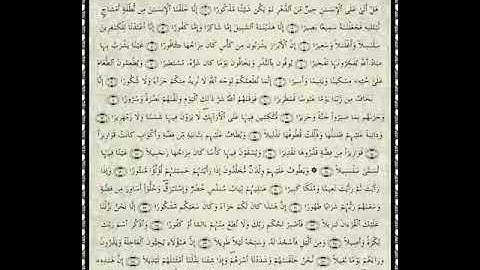 هَلْ أَتَىٰ عَلَى ٱلْإِنسَٰنِ حِينٌ مِّنَ ٱلدَّهْرِ لَمْ يَكُن شَيْـًٔا مَّذْكُورًا ۝ إِنَّا خَلَقْنَا ٱلْإِنسَٰنَ مِن نُّطْفَةٍ أَمْشَاجٍ
نَّبْتَلِيهِ فَجَعَلْنَٰهُ سَمِيعًۢا بَصِيرًا ۝ إِنَّا هَدَيْنَٰهُ ٱلسَّبِيلَ إِمَّا شَاكِرًا وَإِمَّا كَفُورًا ۝ إِنَّآ أَعْتَدْنَا لِلْكَٰفِرِينَ
سَلَٰسِلَا۟ وَأَغْلَٰلًا وَسَعِيرًا ۝ إِنَّ ٱلْأَبْرَارَ يَشْرَبُونَ مِن كَأْسٍ كَانَ مِزَاجُهَا كَافُورًا ۝ عَيْنًا يَشْرَبُ بِهَا
عِبَادُ ٱللَّهِ يُفَجِّرُونَهَا تَفْجِيرًا ۝ يُوفُونَ بِٱلنَّذْرِ وَيَخَافُونَ يَوْمًا كَانَ شَرُّهُۥ مُسْتَطِيرًا ۝ وَيُطْعِمُونَ ٱلطَّعَامَ
عَلَىٰ حُبِّهِۦ مِسْكِينًا وَيَتِيمًا وَأَسِيرًا ۝ إِنَّمَا نُطْعِمُكُمْ لِوَجْهِ ٱللَّهِ لَا نُرِيدُ مِنكُمْ جَزَآءً وَلَا شُكُورًا ۝ إِنَّا
نَخَافُ مِن رَّبِّنَا يَوْمًا عَبُوسًا قَمْطَرِيرًا ۝ فَوَقَىٰهُمُ ٱللَّهُ شَرَّ ذَٰلِكَ ٱلْيَوْمِ وَلَقَّىٰهُمْ نَضْرَةً وَسُرُورًا ۝
وَجَزَىٰهُم بِمَا صَبَرُوا۟ جَنَّةً وَحَرِيرًا ۝ مُّتَّكِـِٔينَ فِيهَا عَلَى ٱلْأَرَآئِكِ لَا يَرَوْنَ فِيهَا شَمْسًا وَلَا زَمْهَرِيرًا ۝
وَدَانِيَةً عَلَيْهِمْ ظِلَٰلُهَا وَذُلِّلَتْ قُطُوفُهَا تَذْلِيلًا ۝ وَيُطَافُ عَلَيْهِم بِـَٔانِيَةٍ مِّن فِضَّةٍ وَأَكْوَابٍ كَانَتْ قَوَارِيرَا۠ ۝
قَوَارِيرَا۟ مِن فِضَّةٍ قَدَّرُوهَا تَقْدِيرًا ۝ وَيُسْقَوْنَ فِيهَا كَأْسًا كَانَ مِزَاجُهَا زَنجَبِيلًا ۝ عَيْنًا فِيهَا
تُسَمَّىٰ سَلْسَبِيلًا ۝ ۞ وَيَطُوفُ عَلَيْهِمْ وِلْدَٰنٌ مُّخَلَّدُونَ إِذَا رَأَيْتَهُمْ حَسِبْتَهُمْ لُؤْلُؤًا مَّنثُورًا ۝ وَإِذَا
رَأَيْتَ ثَمَّ رَأَيْتَ نَعِيمًا وَمُلْكًا كَبِيرًا ۝ عَٰلِيَهُمْ ثِيَابُ سُندُسٍ خُضْرٌ وَإِسْتَبْرَقٌ وَحُلُّوٓا۟ أَسَاوِرَ مِن فِضَّةٍ
وَسَقَىٰهُمْ رَبُّهُمْ شَرَابًا طَهُورًا ۝ إِنَّ هَٰذَا كَانَ لَكُمْ جَزَآءً وَكَانَ سَعْيُكُم مَّشْكُورًا ۝ إِنَّا نَحْنُ نَزَّلْنَا
عَلَيْكَ ٱلْقُرْءَانَ تَنزِيلًا ۝ فَٱصْبِرْ لِحُكْمِ رَبِّكَ وَلَا تُطِعْ مِنْهُمْ ءَاثِمًا أَوْ كَفُورًا ۝ وَٱذْكُرِ ٱسْمَ رَبِّكَ
بُكْرَةً وَأَصِيلًا ۝ وَمِنَ ٱلَّيْلِ فَٱسْجُدْ لَهُۥ وَسَبِّحْهُ لَيْلًا طَوِيلًا ۝ إِنَّ هَٰٓؤُلَآءِ يُحِبُّونَ ٱلْعَاجِلَةَ وَيَذَرُونَ
وَرَآءَهُمْ يَوْمًا ثَقِيلًا ۝ نَّحْنُ خَلَقْنَٰهُمْ وَشَدَدْنَآ أَسْرَهُمْ وَإِذَا شِئْنَا بَدَّلْنَآ أَمْثَٰلَهُمْ تَبْدِيلًا ۝ إِنَّ هَٰذِهِۦ